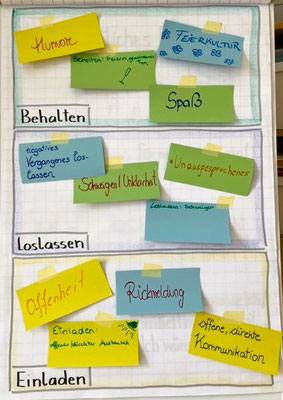 Humor
FEIERKULTUR
Behalten:
Spaß
Behalten
negatives
Vergangenes los-
lassen
Schweigen / Unklarheit
• Unausgesprochenes
Loslassen:
Loslassen
Offenheit
Rückmeldung
Einladen:
offener/direkter Austausch
offene, direkte
Kommunikation
Einladen